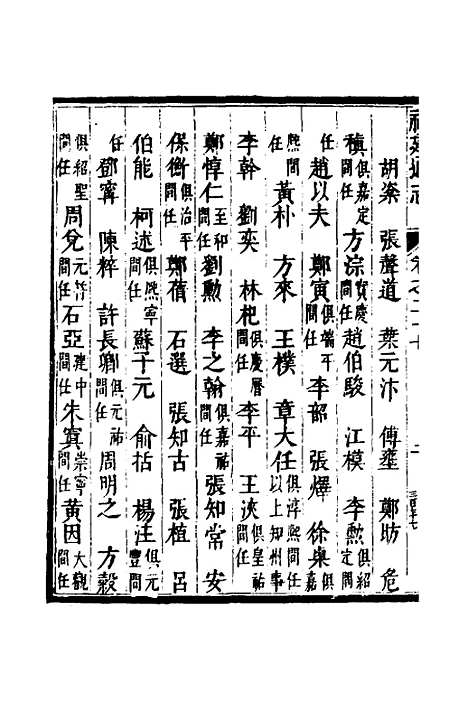 胡 張聲道 葉元汴 傅壅 鄭昉 危
稹俱嘉定間任 方淙寶慶間任 趙伯駿 江模 李勲俱紹定間
任 趙以夫 鄭寅俱端平間任 李韶 張燡 徐俱嘉
熙間任 黄朴 方來 王樸 章大任俱淳熙間任以上知州事
李幹 劉奕 林杞俱慶曆間任 李平 王浹俱皇祐間任
鄭惇仁至和間任 劉勲 李之翰俱嘉祐間任 張知常 安
保衡俱治平間任 鄭蓿 石選 張知古 張植 呂
伯能 柯述俱熙寧間任 蘇子元 俞括 楊汪俱元豐間
任 鄧寗 陳粹 許長卿俱元祐間任 周明之 方穀
俱紹聖間任 周兌元符間任 石亞建中間任 朱寘崇寧間任 黄因大觀間任